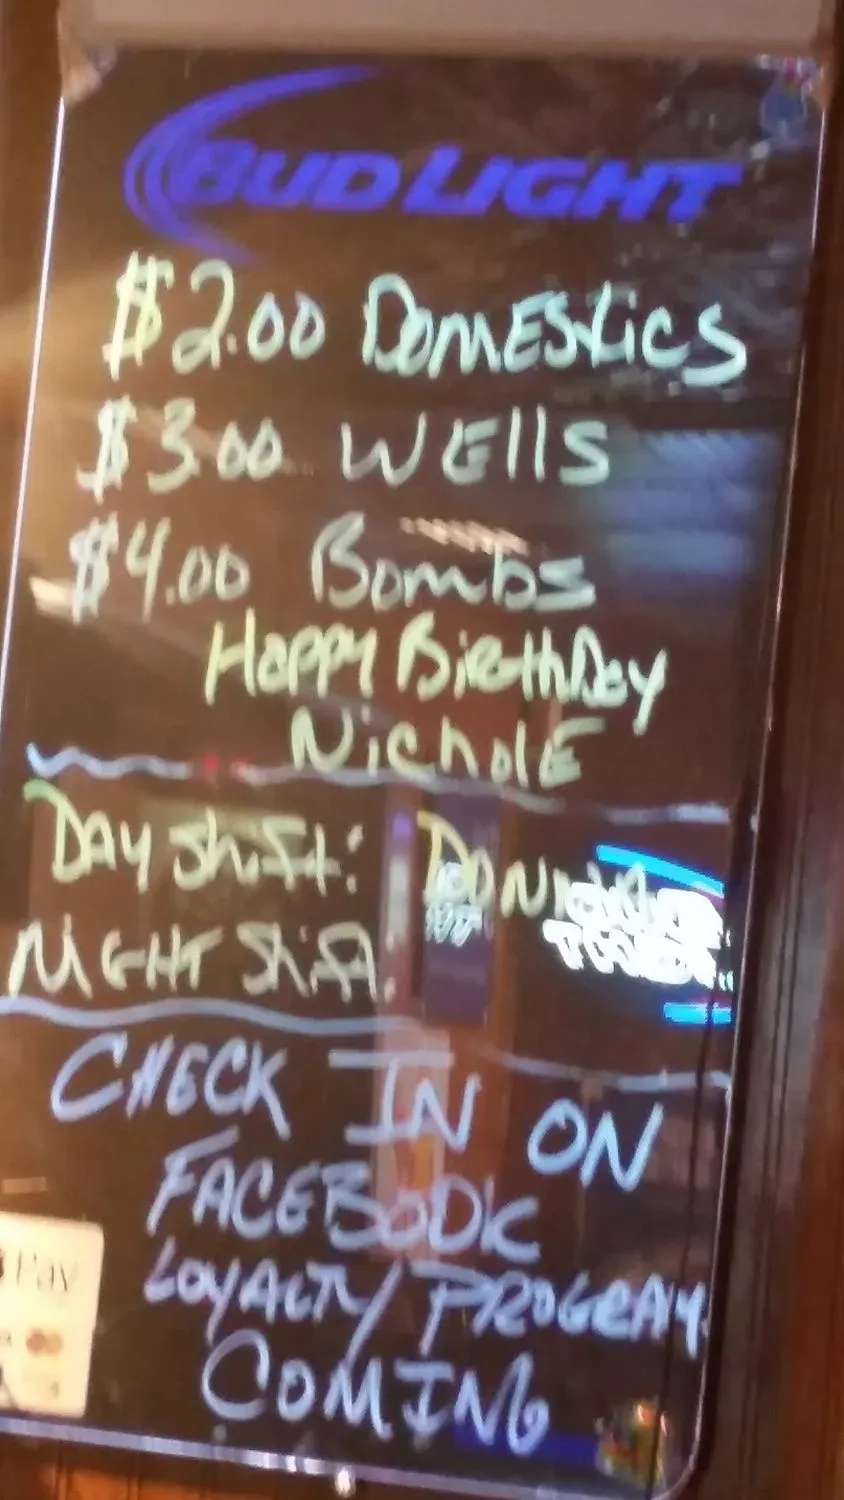 BUD LIGHT
$2.00 DOMESticS
$3.00 WEllS
$4.00 Bombs
HAppy BirthDAy
NicholE
DAy Shift:
NiGHT Shift:
CHECK IN ON
FACEBOOK
LOYALTY PROGRAM
COMING
Pay